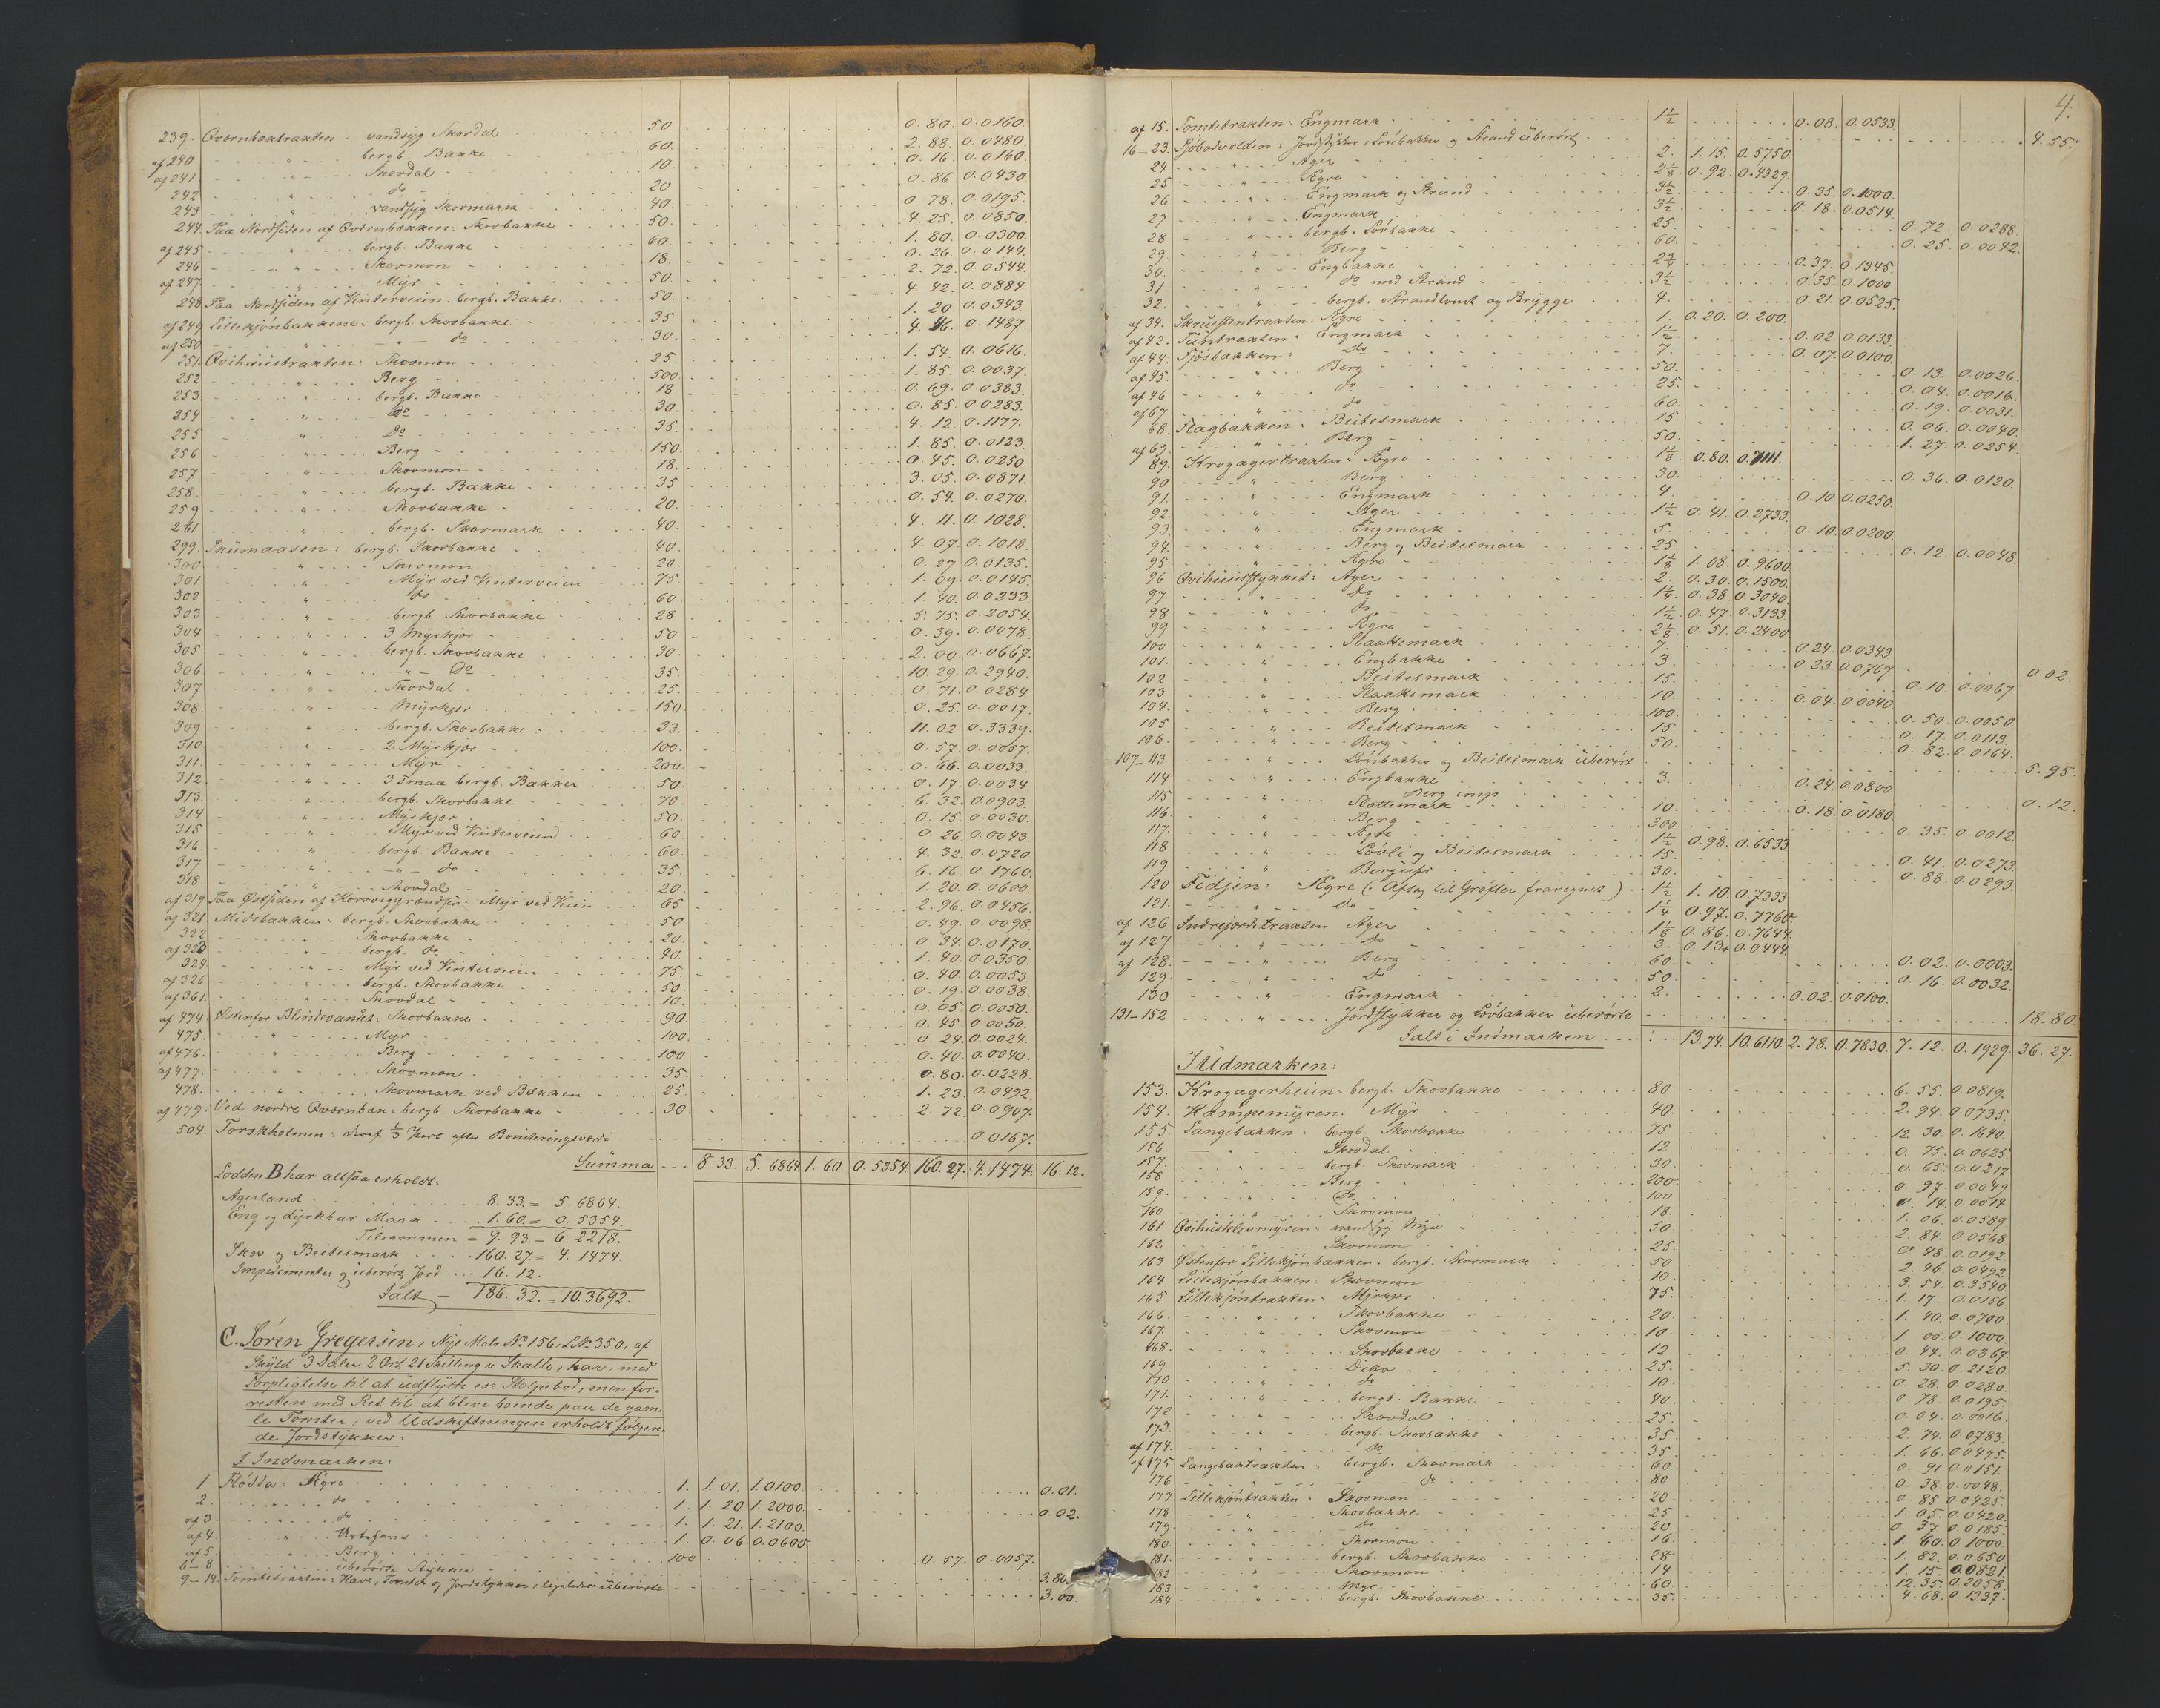 239. Qvernbaktrakten: vandsyg Skovdal 50 0.80. 0.0160.
af 240 " bergb. Bakke 60. 2.88. 0.0480.
af 241. " Skovdal 10. 0.16. 0.0160.
242 " do 20 0.86. 0.0430.
243 " vandsyg Skovmark 40. 0.78. 0.0195.
244. Paa Nordsiden af Qvernbækken: Skovbakke 50. 4.25. 0.0850.
af 245 " bergb. Bakke 60. 1.80. 0.0300.
246 " Skovmon 18. 0.26. 0.0144.
af 247. " Myr 50. 2.72. 0.0544.
248. Paa Nordsiden af Vinterveien: bergb. Bakke 50. 4.42. 0.0884.
af 249 Lillekjónbakkene: bergb. Skovbakke 35 1.20. 0.0343.
af 250 " do 30. 4.46. 0.1487.
251. Qvihuustrakten: Skovmon 25. 1.54. 0.0616.
252 " Berg 500 1.85. 0.0037.
253 " bergb. Bakke 18. 0.69. 0.0383.
254 " do 30. 0.85. 0.0283.
255 " do 35. 4.12. 0.1177.
256 " Berg 150. 1.85. 0.0123.
257 " Skovmon 18. 0.45. 0.0250.
258. " bergb. Bakke 35 3.05. 0.0871.
259 " Skovbakke 20. 0.54. 0.0270.
261 " bergb. Skovmark 40. 4.11. 0.1028.
299. Skumaasen: bergb. Skovbakke 40. 4.07. 0.1018.
300 " Skovmon 20. 0.27. 0.0135.
301. " Myr ved Vinterveien 75. 1.09. 0.0145.
302 " do 60. 1.40. 0.0233.
303 " bergb. Skovbakke 28 5.75. 0.2054.
304 " 3 Myrkjos 50 0.39. 0.0078.
305 " bergb. Skovbakke 30. 2.00. 0.0667.
306 " do 35. 10.29. 0.2940.
307 " Skovdal 25. 0.71. 0.0284.
308. " Myrkjos 150. 0.25. 0.0017.
309. " bergb. Skovbakke 33. 11.02. 0.3339.
310. " 2 Myrkjos 100. 0.57. 0.0057.
311. " Myr 200. 0.66. 0.0033.
312. " 3 smaa bergb. Bakker 50. 0.17. 0.0034.
313. " bergb. Skovbakke 70. 6.32. 0.0903.
314 " Myrkjos 50. 0.15. 0.0030.
315 " Myr ved Vinterveien 60. 0.26. 0.0043.
316 " bergb. Bakke 60. 4.32. 0.0720.
317 " do 35. 6.16. 0.1760.
318. " Skovdal 20. 1.20. 0.0600.
af 319 Paa Østsiden af Korsviggrændsen: Myr ved Veien 65 2.96. 0.0456.
af 321 Midtbakken: bergb. Skovbakke 50 0.49. 0.0098.
322 " Skovbakke 20. 0.34. 0.0170.
af 323 " bergb. do 40. 1.40. 0.0350.
324 " Myr ved Vinterveien 75. 0.40. 0.0053.
af 326 " bergb. Skovbakke 50. 0.19. 0.0038.
af 361. " Skovdal 10. 0.05. 0.0050.
af 474. Østenfor Blindevandet: Skovbakke 90. 0.45. 0.0050.
475. " Myr 100. 0.24. 0.0024.
af 476. " Berg 100 0.40. 0.0040.
af 477. " Skovmon 35. 0.80. 0.0228.
478. " Skovmark ved Bækken 25. 1.23. 0.0492.
af 479. Ved nordre Qvernbæk: bergb. Skovbakke 30. 2.72. 0.0907.
504. Torskholmen: deraf 1/3 Part efter Boniteringsværdi 0.0167.
Summa 8.33. 5.6864. 1.60. 0.5354. 160.27. 4.1474. 16.12.
Lodden B har altsaa erholdt:
Agerland 8.33. = 5.6864.
Eng og dyrkbar Mark 1.60. = 0.5354.
Tilsammen = 9.93. = 6.2218.
Skov og Beitesmark 160.27. = 4.1474.
Impedimenter og uberørt Jord 16.12.
Ialt 186.32. = 10.3692.
C. Sören Gregersen, Nye Matr. No 156, L.No 350, af
Skyld 3 Daler 2 Ort 21 Skilling i Skatte, har, med
Forpligtelse til at udflytte en Stolpebod, men for-
resten med Ret til at blive boende paa de gam-
le Tomter, ved Udskiftningen erholdt følgen-
de Jordstykker:
I Indmarken:
1 Flódda: Agre 1. 1.01. 1.0100. 0.01.
2. " do 1. 1.20. 1.2000. 0.02.
af 3 " do 1. 1.21. 1.2100.
af 4. " Urtehave 1. 0.06. 0.0600
af 5. " Berg 100 0.57. 0.0057.
6-8 " uberørte Stykker 3.86.
9-14. Tomtetrakten: Have, Tomter og Jordstykker, ligeledes uberørte 3.00.
4.
af 15. Tomtetrakten: Engmark 1½ 0.08. 0.0533.
16-23. Sjöbodvolden: Jordstykker, Lóvbakker og Strand uberørt 4.55.
24 " Ager 2. 1.15. 0.5750.
25 " Agre 2⅛ 0.92. 0.4329.
26 " Engmark og Strand 3½ 0.35. 0.1000.
27 " Engmark 3½ 0.18. 0.0514.
28 " bergb. Lóvbakke 25. 0.72. 0.0288.
29 " Berg 60. 0.25. 0.0042.
30. " Engbakke 2¾ 0.37. 0.1345.
31. " do med Strand 3½ 0.35. 0.1000.
32. " bergb. Strandtomt og Brygge 4. 0.21. 0.0525.
af 34. Agre 1. 0.20. 0.200.
af 42. Tuntrakten: Engmark 1½ 0.02. 0.0133.
af 44. Fjósbakken: do 7. 0.07. 0.0100.
af 45. " Berg 50. 0.13. 0.0026.
af 46 " do 25. 0.04. 0.0016.
af 67 " do 60. 0.19. 0.0031.
68. Flagbakken: Beitesmark 15. 0.06. 0.0040.
af 69. " Berg 50. 1.27. 0.0254.
89. Krogagertrakten: Agre 1⅛ 0.80. 0.7111.
90 " Berg 30. 0.36. 0.0120.
91. " Engmark 4. 0.10. 0.0250.
92. " Ager 1½ 0.41. 0.2733.
93. " Engmark 5. 0.10. 0.0200.
94. " Berg og Beitesmark 25. 0.12. 0.0048.
95. " Agre 1⅛ 1.08. 0.9600.
96 Qvihuusstykket: Ager 2. 0.30. 0.1500.
97. " do 1¼ 0.38. 0.3040.
98 " do 1½ 0.47. 0.3133.
99 " Agre 2⅛ 0.51. 0.2400
100 " Slaattemark 7. 0.24. 0.0343.
101. " Engbakke 3. 0.23. 0.0767. 0.02.
102 " Beitesmark 15. 0.10. 0.0067.
103 " Slaattemark 10. 0.04. 0.0040.
104. " Berg 100. 0.50. 0.0050.
105 " Beitesmark 15 0.17. 0.0113.
106. " Berg 50. 0.82. 0.0164.
107-113 " Lóvbakker og Beitesmark uberørt 5.95.
114 " Engbakke 3. 0.24. 0.0800.
115 " Berg imp 0.12.
" Slattemark 10. 0.18. 0.0180.
116. " Berg 300 0.35. 0.0012.
117. " Agre 1½ 0.98. 0.6533.
118 " Lövli og Beitesmark 15. 0.41. 0.0273.
119 " Bergufs 30. 0.88. 0.0293.
120 Fidjen: Agre (: Aftag til Gröfter fraregnet) 1½ 1.10. 0.7333
121. " do 1¼ 0.97. 0.7760.
af 126 Indrejordstrakten Ager 1⅛ 0.86. 0.7644.
af 127 " do 3. 0.13+ 0.0444.
af 128. " Berg 60. 0.02. 0.0003.
129. " do 50. 0.16. 0.0032.
130 " Engmark 2. 0.02. 0.0100.
131-152 " Jordstykker og Lóvbakker uberørte 18.80.
Ialt i Indmarken 13.74. 10.6110. 2.78. 0.7830. 7.12. 0.1929. 36.27.
I Udmarken:
153. Krogagerheien: bergb. Skovbakke 80 6.55. 0.0819.
154. Kampemyren: Myr 40. 2.94. 0.0735.
155 Langebakken: bergb. Skovbakke 75 12.30. 0.1640.
156 " Skovdal 12 0.75. 0.0625
157. " bergb. Skovmark 30. 0.65. 0.0217.
158 " Berg 200. 0.97. 0.0049.
159. " do 100 0.14. 0.0014.
160 " Skovmon 18. 1.06. 0.0589.
161 Qvihusklevmyren: vandsyg Myr 50 2.84. 0.0568.
162 " Skovmon 25. 0.48. 0.0192.
163 Østenfor Lillekjónbakken: bergb. Skovmark 50 2.46. 0.0492.
164 Lillekjónbakken: Skovmon 10. 3.54. 0.3540.
165 Lillekjóntrakten: Myrkjos 75. 1.17. 0.0156.
166. " Skovbakke 20. 1.40. 0.0700.
167. " Skovmon 10. 1.00. 0.1000.
168. " Skovbakke 12 0.44. 0.0367.
169 " Ditto 25. 5.30. 0.2120.
170 " do 10. 0.28. 0.0280.
171. " bergb. Bakke 40. 0.78. 0.0195.
172 " Skovdal 25. 0.04. 0.0016.
173. " bergb. Skovbakke 35. 2.74. 0.0783.
af 174. " do 35 1.66. 0.0475.
af 175 Langebaktrakten: bergb. Skovmark 60 0.91 0.0151.
176 " do 80 0.38. 0.0048.
177 Lillekjóntrakten: Skovmon 20. 0.85. 0.0425.
178 " Skovbakke 25 1.05. 0.0420.
179 " do 20. 0.37. 0.0185.
180 " Skovmon 16. 1.60. 0.1000.
181. " bergb. Skovbakke 28 1.82. 0.0650.
182 " Skovmon 14 1.15. 0.0821.
183 " Myr 60. 12.35. 0.2058.
184 " bergb. Skovbakke 35. 4.68. 0.1337.